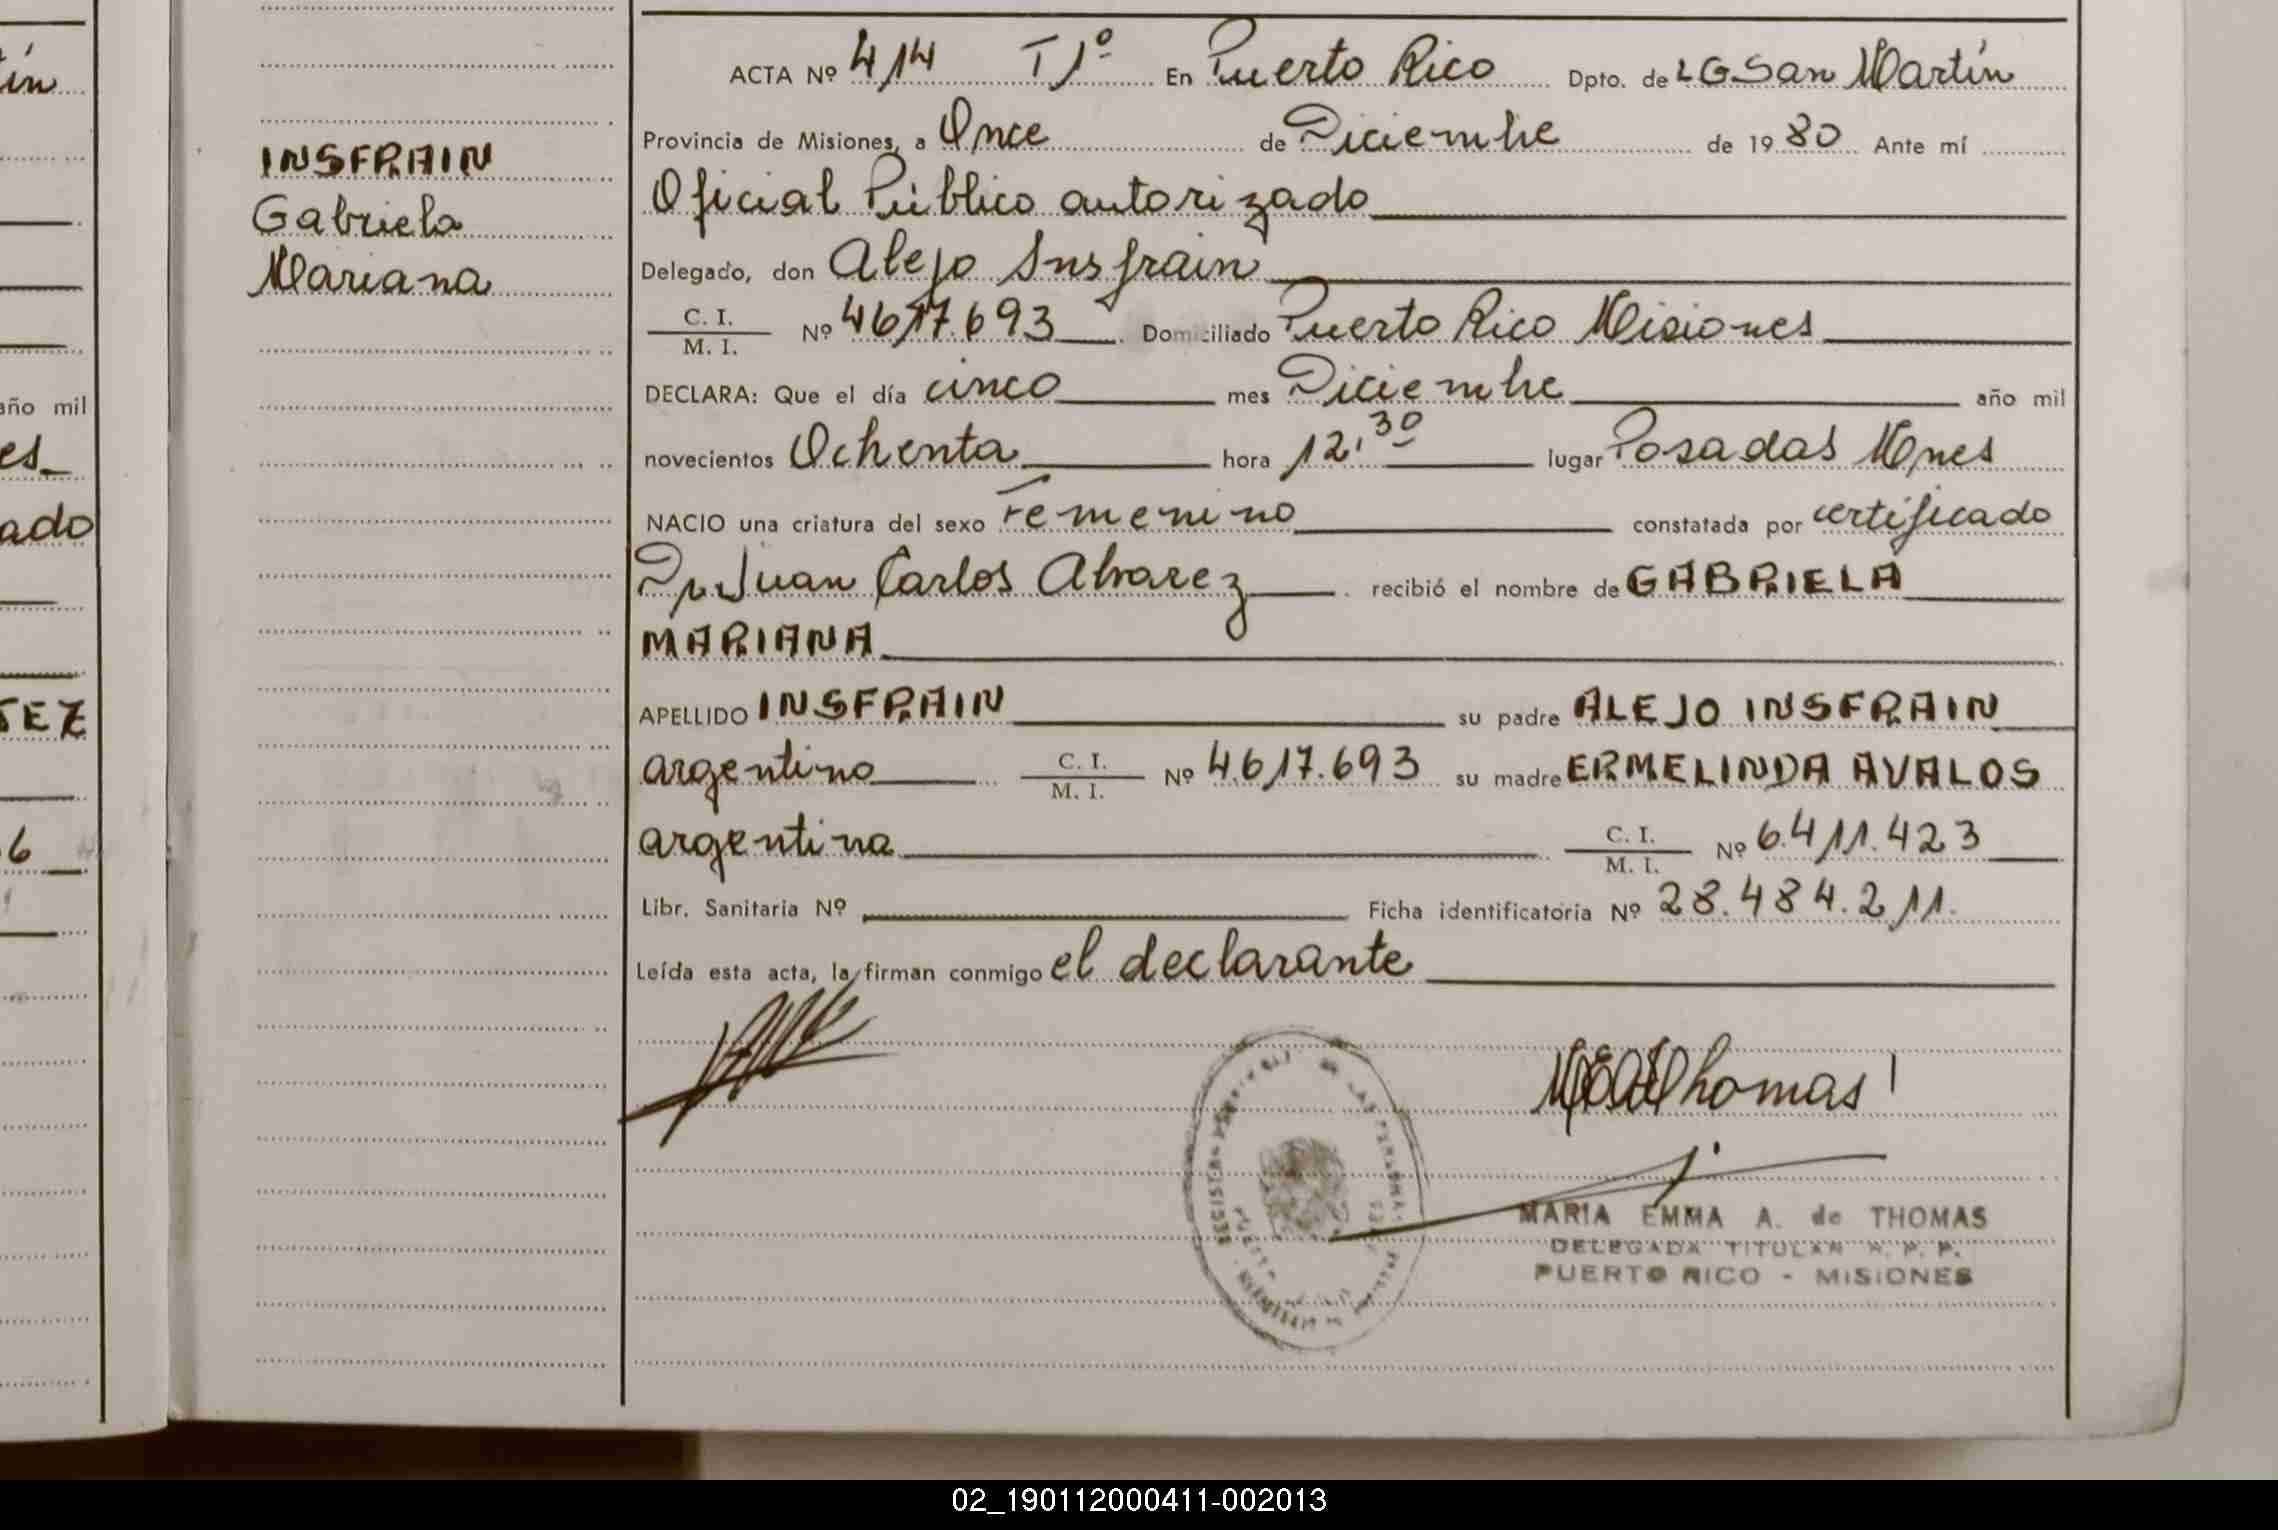 ín
INSFRAIN
Gabriela
Mariana
año mil
es
ado
TEZ
6
ACTA Nº 414 T 1º En Puerto Rico Dpto. de L G San Martín
Provincia de Misiones, a Once de Diciembre de 19 80 Ante mí
Oficial Público autorizado
Delegado, don Alejo Insfrain
C. I. / M. I. Nº 4617.693 Domiciliado Puerto Rico Misiones
DECLARA: Que el día cinco mes Diciembre año mil
novecientos Ochenta hora 12,30 lugar Posadas Mnes
NACIO una criatura del sexo Femenino constatada por certificado
Dr. Juan Carlos Alvarez recibió el nombre de GABRIELA
MARIANA
APELLIDO INSFRAIN su padre ALEJO INSFRAIN
argentino C. I. / M. I. Nº 4.617.693 su madre ERMELINDA AVALOS
argentina C. I. / M. I. Nº 6.411.423
Libr. Sanitaria Nº Ficha identificatoria Nº 28.484.211.
Leída esta acta, la firman conmigo el declarante
Thomas
MARIA EMMA A. de THOMAS
DELEGADA TITULAR R. P. P.
PUERTO RICO - MISIONES
02_190112000411-002013